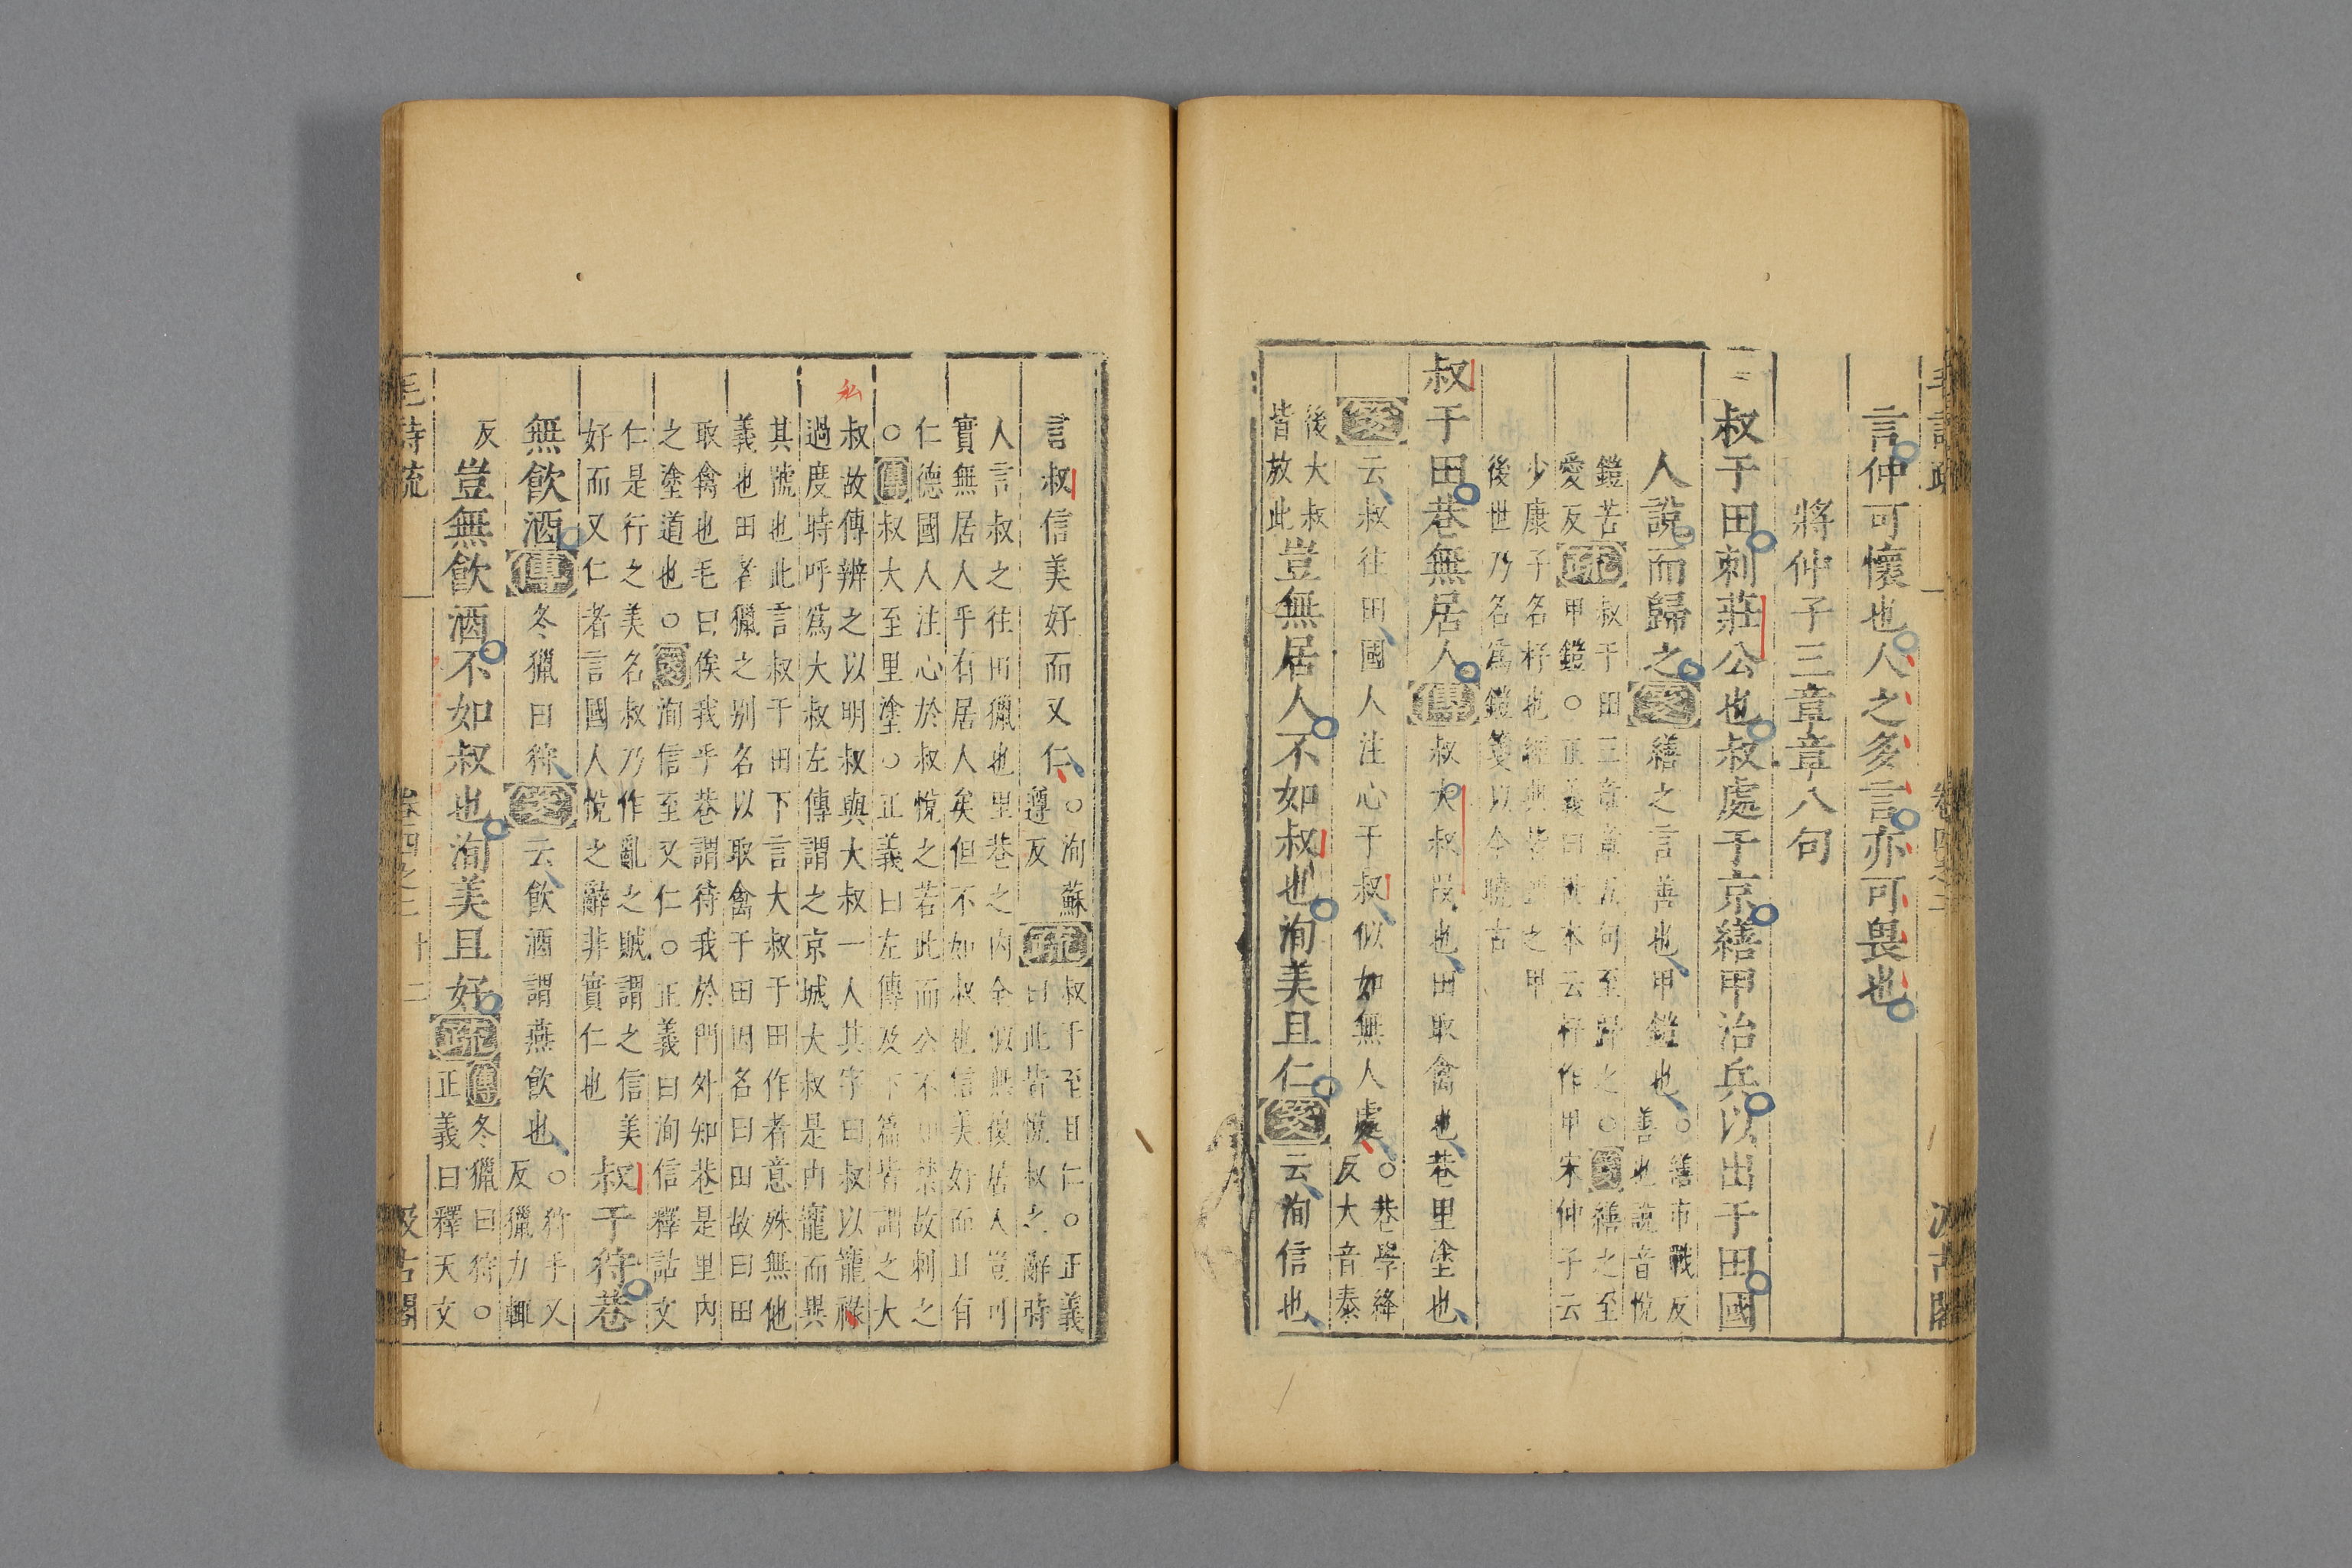 言仲可懷也人之多言亦可畏也
將仲子三章章八句
叔于田刺莊公也叔處于京繕甲治兵以出于田國
人說而歸之箋繕之言善也甲鎧也○繕市戰反
善也說音悅
鎧苦
愛反疏叔于田三章章五句至歸之○箋繕之至
甲鎧○正義曰世本云杼作甲宋仲子云
少康子名杼也經典皆謂之甲
後世乃名爲鎧箋以今曉古
叔于田巷無居人傳叔大叔段也田取禽也巷里塗也
箋云叔往田國人注心于叔似如無人處○巷學絳
反大音泰
後大叔
皆放此豈無居人不如叔也洵美且仁箋云洵信也
言叔信美好而又仁○洵蘇
遵反疏叔于至且仁○正義
曰此皆悅叔之辭時
人言叔之往田獵也里巷之內全似無復居人豈可
實無居人乎有居人矣但不如叔也信美好而且有
仁德國人注心於叔悅之若此而公不知禁故刺之
○傳叔大至里塗○正義曰左傳及下篇皆謂之大
叔故傳辨之以明叔與大叔一人其字曰叔以寵祿
過度時呼爲大叔左傳謂之京城大叔是由寵而異
其號也此言叔于田下言大叔于田作者意殊無他
義也田者獵之別名以取禽于田因名曰田故曰田
取禽也毛曰俟我乎巷謂待我於門外知巷是里內
之塗道也○箋洵信至又仁○正義曰洵信釋詁文
仁是行之美名叔乃作亂之賊謂之信美
好而又仁者言國人悅之辭非實仁也叔于狩巷
無飲酒傳冬獵曰狩箋云飲酒謂燕飲也○狩手又
反獵力輒
反豈無飲酒不如叔也洵美且好疏傳冬獵曰狩○
正義曰釋天文
私
毛詩疏 卷四之二 十二 汲古閣
毛詩疏 卷四之二 汲古閣